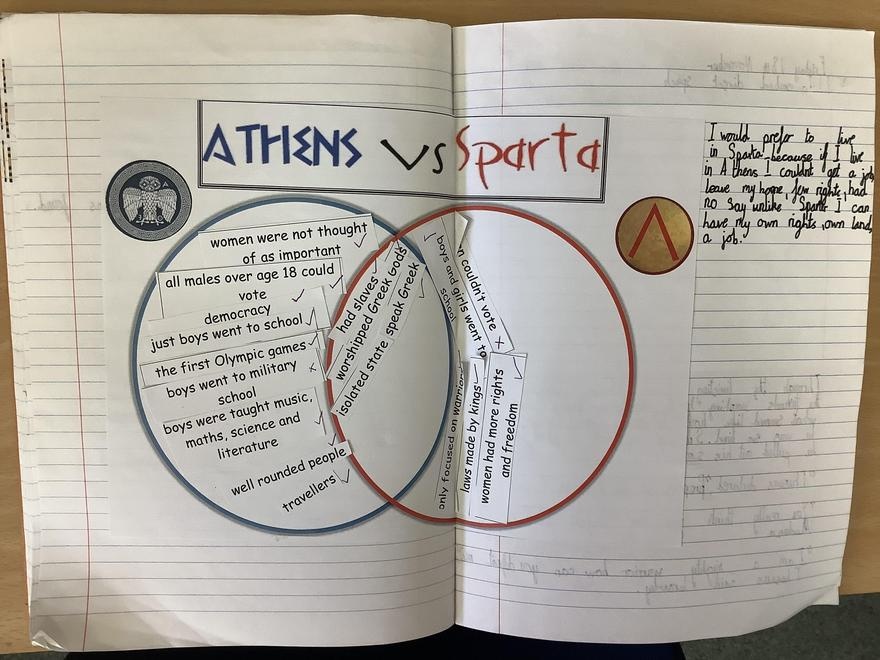 ATHENS vs Sparta
women were not thought
of as important
all males over age 18 could
vote
democracy
just boys went to school
the first Olympic games
boys went to military
school
boys were taught music,
maths, science and
literature
well rounded people
travellers
had slaves
worshipped Greek Gods
isolated state speak Greek
boys and girls went to
school
couldn't vote
only focused on warrior
laws made by kings
women had more rights
and freedom
Λ
I would prefer to live
in Sparta because if I live
in Athens I couldn't get a job,
leave my home, few rights, had
no say unlike Sparta I can
have my own rights, own land,
a job.